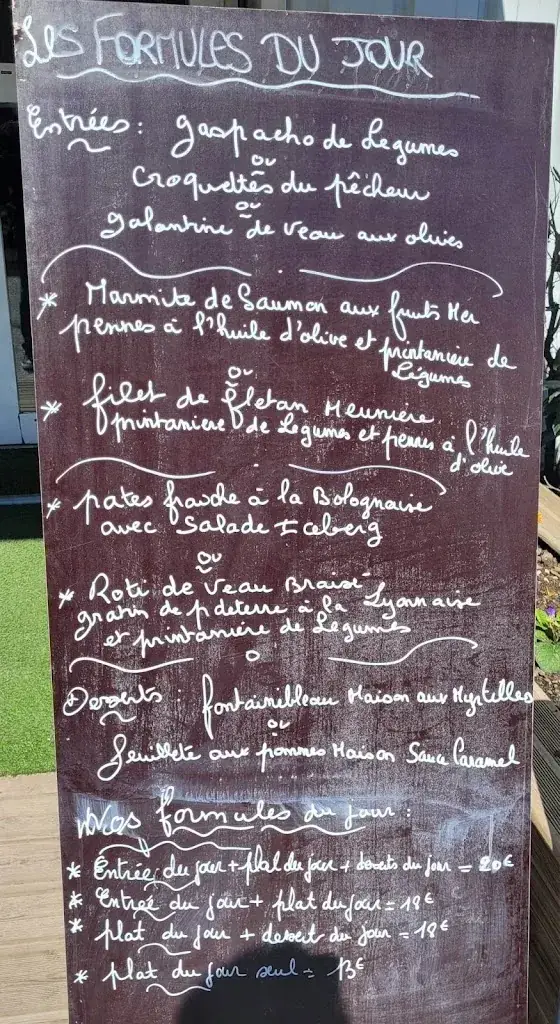 LES FORMULES DU JOUR
Entrées : gaspacho de Légumes
ou
Croquettes du pêcheur
ou
galantine de Veau aux olives
* Marmite de Saumon aux fruits Mer
pennes à l'huile d'olive et printaniere de
Légumes
ou
* filet de fletan Meuniere
printaniere de Légumes et pennes à l'huile
d'olive
* pates fraiche à la Bolognaise
avec Salade Iceberg
ou
* Roti de Veau Braisé
gratin de p deterre à la Lyonnaise
et printaniére de Légumes
Desserts : fontainebleau Maison aux Myrtilles
ou
feuilleté aux pommes Maison Sauce Caramel
Nos formules du jour :
* Entrée du jour + plat du jour + desserts du jour = 20€
* Entrée du jour + plat du jour = 18€
* plat du jour + dessert du jour = 18€
* plat du jour seul = 13€